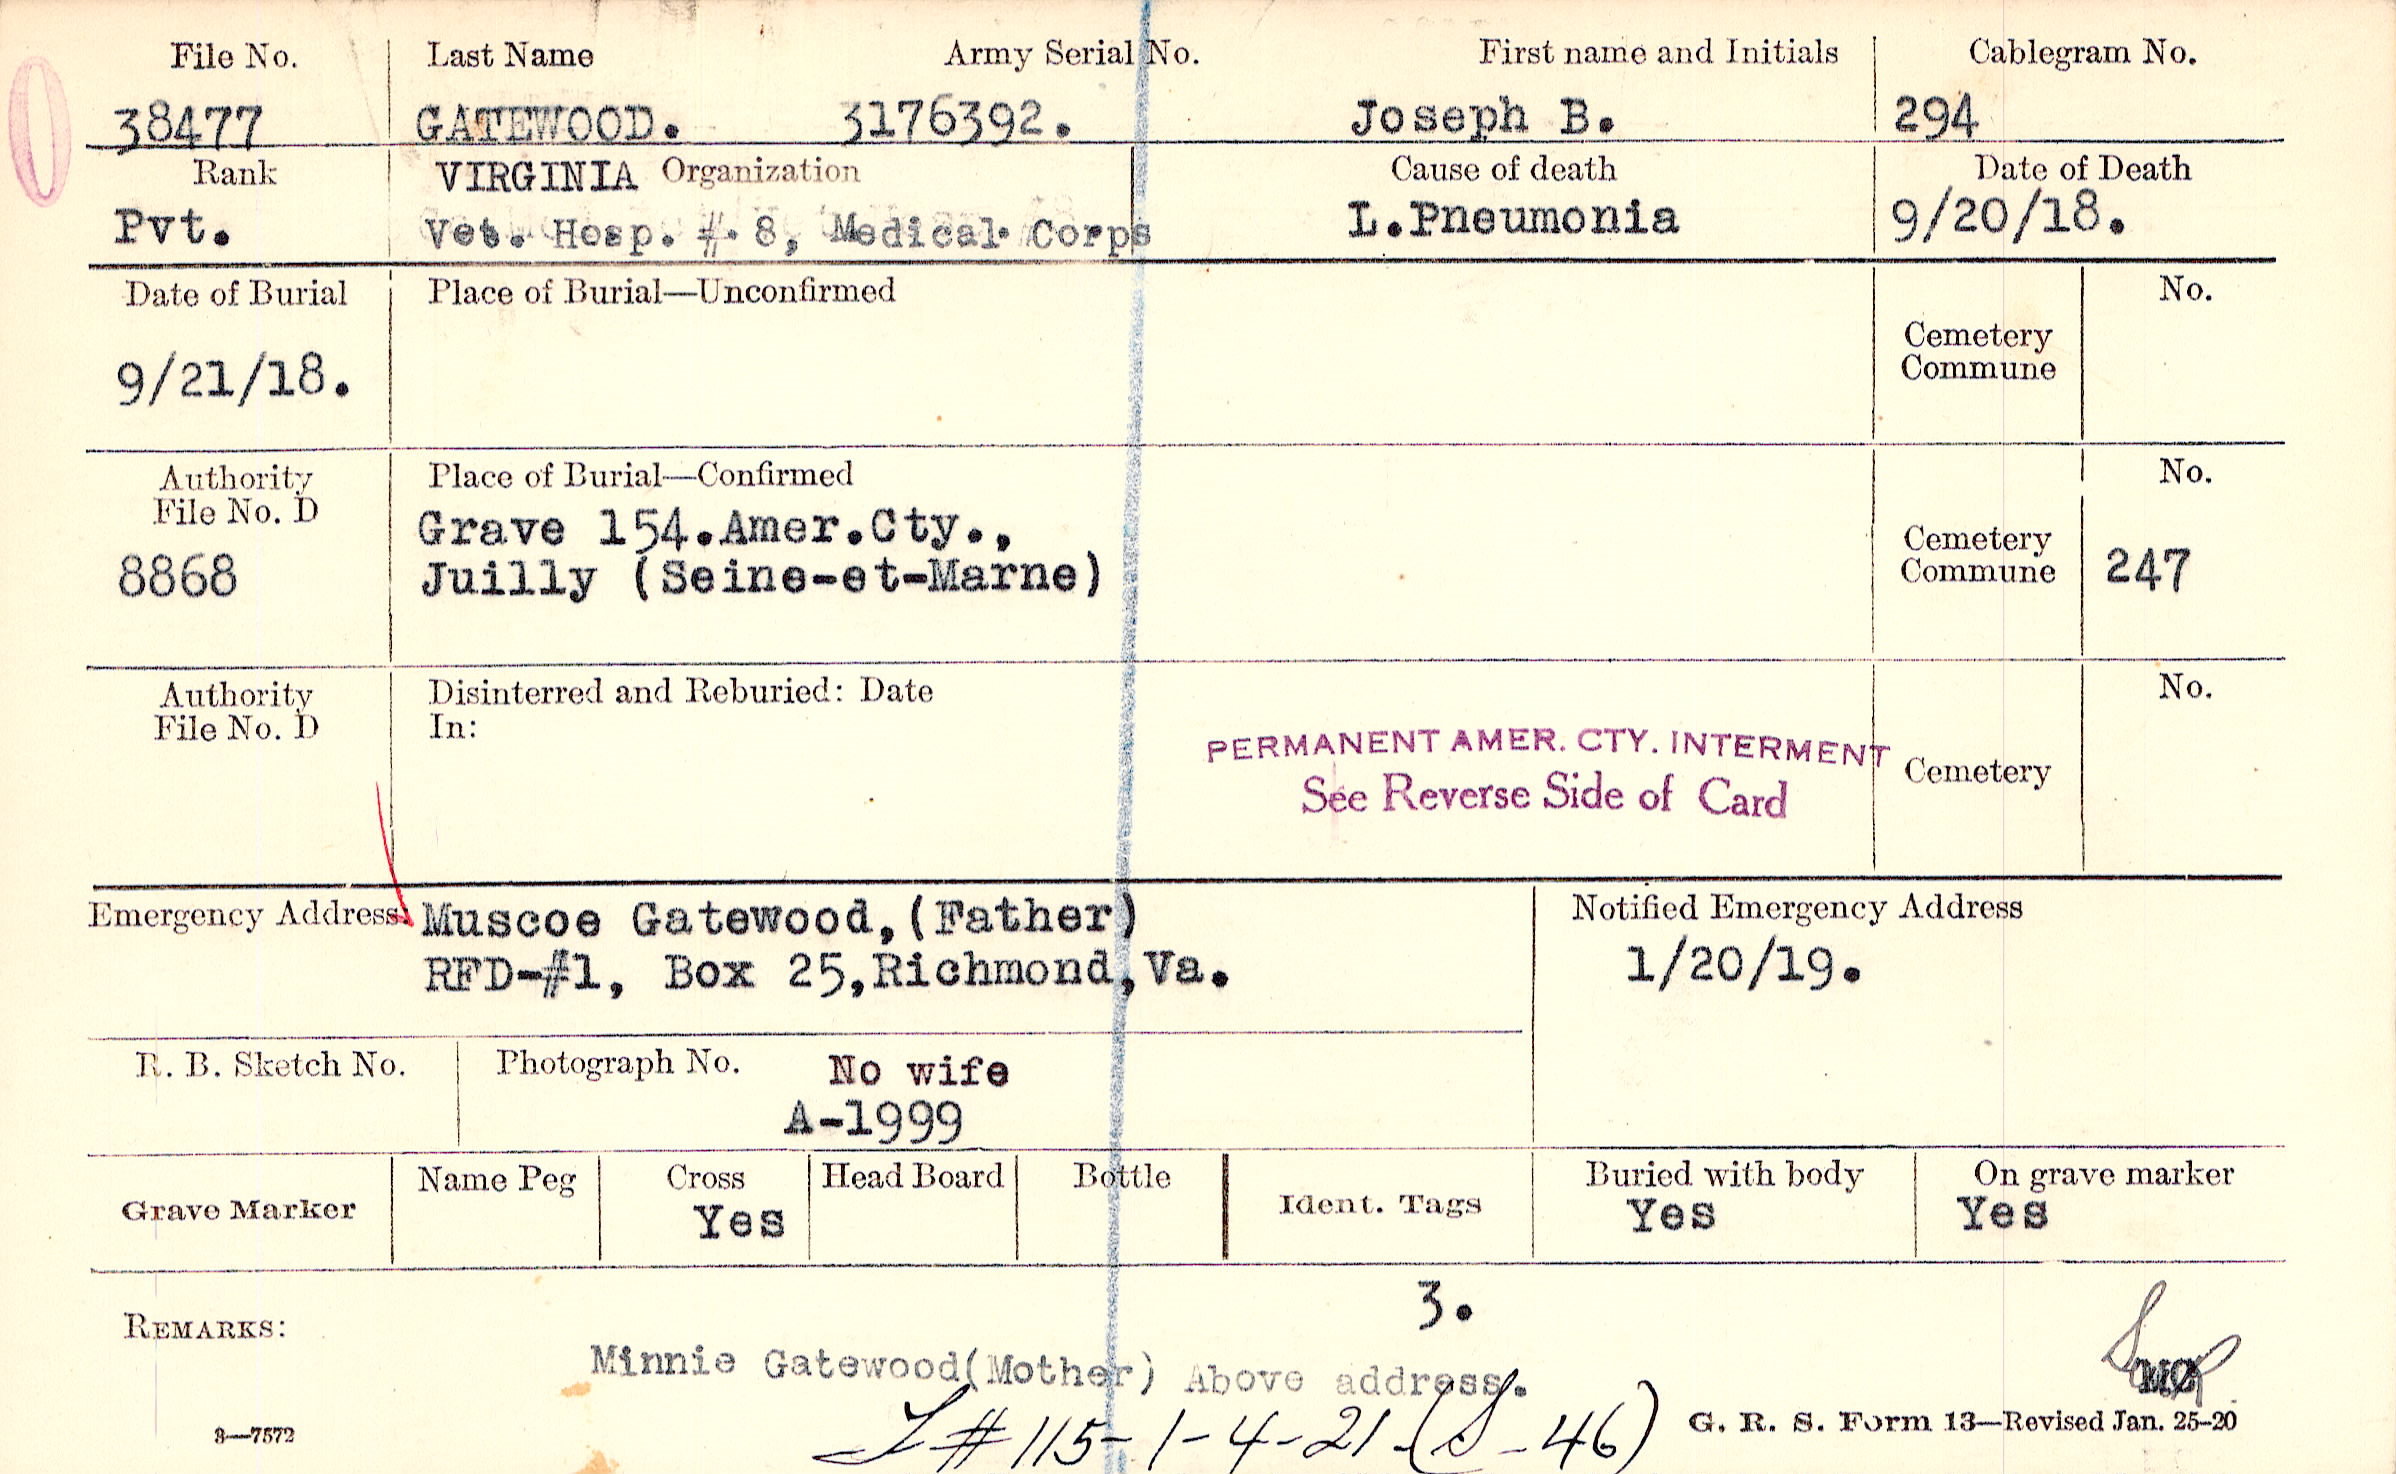 File No. Last Name Army Serial No. First name and Initials Cablegram No.
38477 GATEWOOD. 3176392. Joseph B. 294
Rank VIRGINIA Organization Cause of death Date of Death
Pvt. Vet. Hosp. #. 8, Medical Corps L.Pneumonia 9/20/18.
Date of Burial Place of Burial—Unconfirmed No.
Cemetery
Commune
9/21/18.
Authority Place of Burial—Confirmed No.
File No. D
Grave 154.Amer.Cty.,
Cemetery
8868 Juilly (Seine-et-Marne) Commune 247
Authority Disinterred and Reburied: Date No.
File No. D In:
PERMANENT AMER. CTY. INTERMENT
Cemetery
See Reverse Side of Card
Emergency Address: Muscoe Gatewood,(Father) Notified Emergency Address
RFD-#1, Box 25,Richmond,Va. 1/20/19.
R. B. Sketch No. Photograph No. No wife
A-1999
Grave Marker Name Peg Cross Head Board Bottle Ident. Tags Buried with body On grave marker
Yes Yes Yes
3.
REMARKS:
Minnie Gatewood(Mother) Above address.
L # 115-1-4-21-(S-46)
3—7572 G. R. S. Form 13—Revised Jan. 25-20